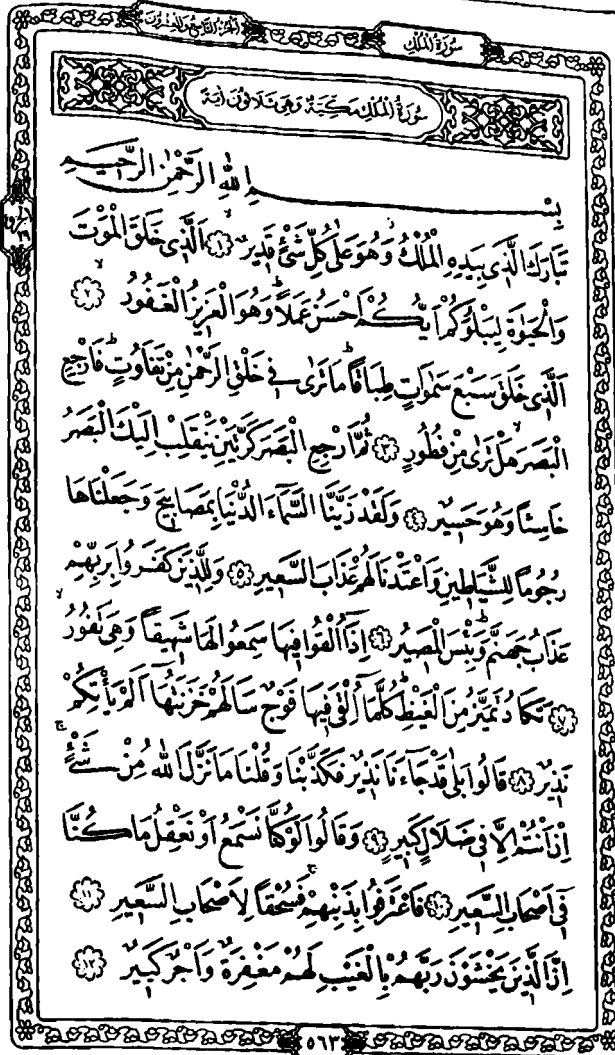 الجزء التاسع والعشرون
سورة الملك
سُورَةُ الْمُلْكِ مَكِّيَّةٌ وَهِىَ ثَلَاثُونَ اٰيَةً
بِسْمِ اللهِ الرَّحْمٰنِ الرَّحٖيمِ
تَبَارَكَ الَّذٖى بِيَدِهِ الْمُلْكُۘ وَهُوَ عَلٰى كُلِّ شَىْءٍ قَدٖيرٌۙ ﴿١﴾ اَلَّذٖى خَلَقَ الْمَوْتَ
وَالْحَيٰوةَ لِيَبْلُوَكُمْ اَيُّكُمْ اَحْسَنُ عَمَلاًؕ وَهُوَ الْعَزٖيزُ الْغَفُورُۙ ﴿٢﴾
اَلَّذٖى خَلَقَ سَبْعَ سَمٰوَاتٍ طِبَاقاًؕ مَا تَرٰى فٖى خَلْقِ الرَّحْمٰنِ مِنْ تَفَاوُتٍؕ فَارْجِعِ
الْبَصَرَۙ هَلْ تَرٰى مِنْ فُطُورٍ ﴿٣﴾ ثُمَّ ارْجِعِ الْبَصَرَ كَرَّتَيْنِ يَنْقَلِبْ اِلَيْكَ الْبَصَرُ
خَاسِئاً وَهُوَ حَسٖيرٌ ﴿٤﴾ وَلَقَدْ زَيَّنَّا السَّمَٓاءَ الدُّنْيَا بِمَصَابٖيحَ وَجَعَلْنَاهَا
رُجُوماً لِلشَّيَاطٖينِ وَاَعْتَدْنَا لَهُمْ عَذَابَ السَّعٖيرِ ﴿٥﴾ وَلِلَّذٖينَ كَفَرُوا بِرَبِّهِمْ
عَذَابُ جَهَنَّمَؕ وَبِئْسَ الْمَصٖيرُ ﴿٦﴾ اِذَٓا اُلْقُوا فٖيهَا سَمِعُوا لَهَا شَهٖيقاً وَهِىَ تَفُورُۙ
﴿٧﴾ تَكَادُ تَمَيَّزُ مِنَ الْغَيْظِؕ كُلَّمَٓا اُلْقِىَ فٖيهَا فَوْجٌ سَاَلَهُمْ خَزَنَتُهَٓا اَلَمْ يَأْتِكُمْ
نَذٖيرٌ ﴿٨﴾ قَالُوا بَلٰى قَدْ جَٓاءَنَا نَذٖيرٌ فَكَذَّبْنَا وَقُلْنَا مَا نَزَّلَ اللهُ مِنْ شَىْءٍۚ
اِنْ اَنْتُمْ اِلَّا فٖى ضَلَالٍ كَبٖيرٍ ﴿٩﴾ وَقَالُوا لَوْ كُنَّا نَسْمَعُ اَوْ نَعْقِلُ مَا كُنَّا
فٖٓى اَصْحَابِ السَّعٖيرِ ﴿١٠﴾ فَاعْتَرَفُوا بِذَنْبِهِمْۚ فَسُحْقاً لِاَصْحَابِ السَّعٖيرِ ﴿١١﴾
اِنَّ الَّذٖينَ يَخْشَوْنَ رَبَّهُمْ بِالْغَيْبِ لَهُمْ مَغْفِرَةٌ وَاَجْرٌ كَبٖيرٌ ﴿١٢﴾
٥٦٣